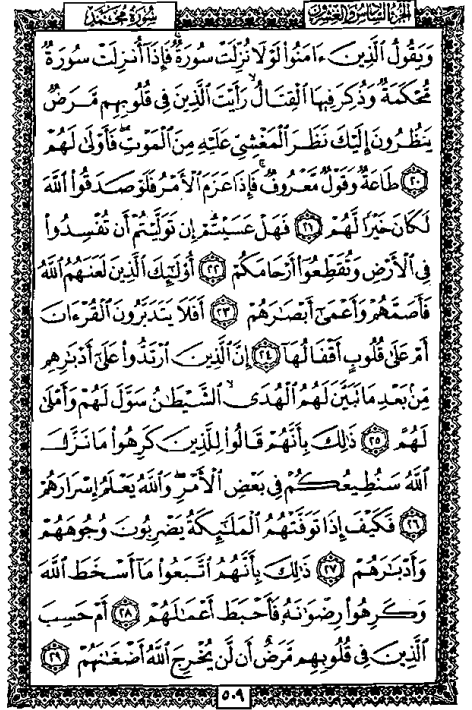 الجزء السادس والعشرون سورة محمد
وَيَقُولُ الَّذِينَ ءَامَنُوا لَوْلَا نُزِّلَتْ سُورَةٌ ۖ فَإِذَا أُنزِلَتْ سُورَةٌ
مُّحْكَمَةٌ وَذُكِرَ فِيهَا الْقِتَالُ ۙ رَأَيْتَ الَّذِينَ فِي قُلُوبِهِم مَّرَضٌ
يَنظُرُونَ إِلَيْكَ نَظَرَ الْمَغْشِيِّ عَلَيْهِ مِنَ الْمَوْتِ ۖ فَأَوْلَىٰ لَهُمْ
٢٠ طَاعَةٌ وَقَوْلٌ مَّعْرُوفٌ ۚ فَإِذَا عَزَمَ الْأَمْرُ فَلَوْ صَدَقُوا اللَّهَ
لَكَانَ خَيْرًا لَّهُمْ ٢١ فَهَلْ عَسَيْتُمْ إِن تَوَلَّيْتُمْ أَن تُفْسِدُوا
فِي الْأَرْضِ وَتُقَطِّعُوا أَرْحَامَكُمْ ٢٢ أُولَٰئِكَ الَّذِينَ لَعَنَهُمُ اللَّهُ
فَأَصَمَّهُمْ وَأَعْمَىٰ أَبْصَارَهُمْ ٢٣ أَفَلَا يَتَدَبَّرُونَ الْقُرْءَانَ
أَمْ عَلَىٰ قُلُوبٍ أَقْفَالُهَا ٢٤ إِنَّ الَّذِينَ ارْتَدُّوا عَلَىٰ أَدْبَارِهِم
مِّن بَعْدِ مَا تَبَيَّنَ لَهُمُ الْهُدَى ۙ الشَّيْطَانُ سَوَّلَ لَهُمْ وَأَمْلَىٰ
لَهُمْ ٢٥ ذَٰلِكَ بِأَنَّهُمْ قَالُوا لِلَّذِينَ كَرِهُوا مَا نَزَّلَ
اللَّهُ سَنُطِيعُكُمْ فِي بَعْضِ الْأَمْرِ ۖ وَاللَّهُ يَعْلَمُ إِسْرَارَهُمْ
٢٦ فَكَيْفَ إِذَا تَوَفَّتْهُمُ الْمَلَائِكَةُ يَضْرِبُونَ وُجُوهَهُمْ
وَأَدْبَارَهُمْ ٢٧ ذَٰلِكَ بِأَنَّهُمُ اتَّبَعُوا مَا أَسْخَطَ اللَّهَ
وَكَرِهُوا رِضْوَانَهُ فَأَحْبَطَ أَعْمَالَهُمْ ٢٨ أَمْ حَسِبَ
الَّذِينَ فِي قُلُوبِهِم مَّرَضٌ أَن لَّن يُخْرِجَ اللَّهُ أَضْغَانَهُمْ ٢٩
٥٠٩